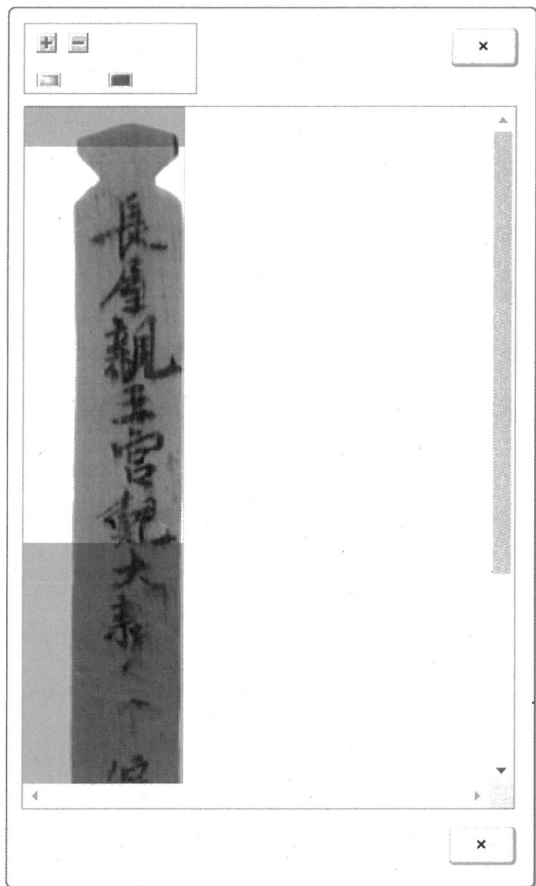 長屋親王宮鮑大贄十編